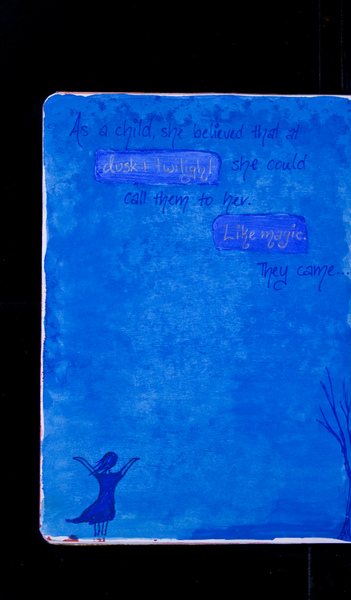 As a child, she believed that at
dusk + twilight she could
call them to her.
Like magic.
They came...